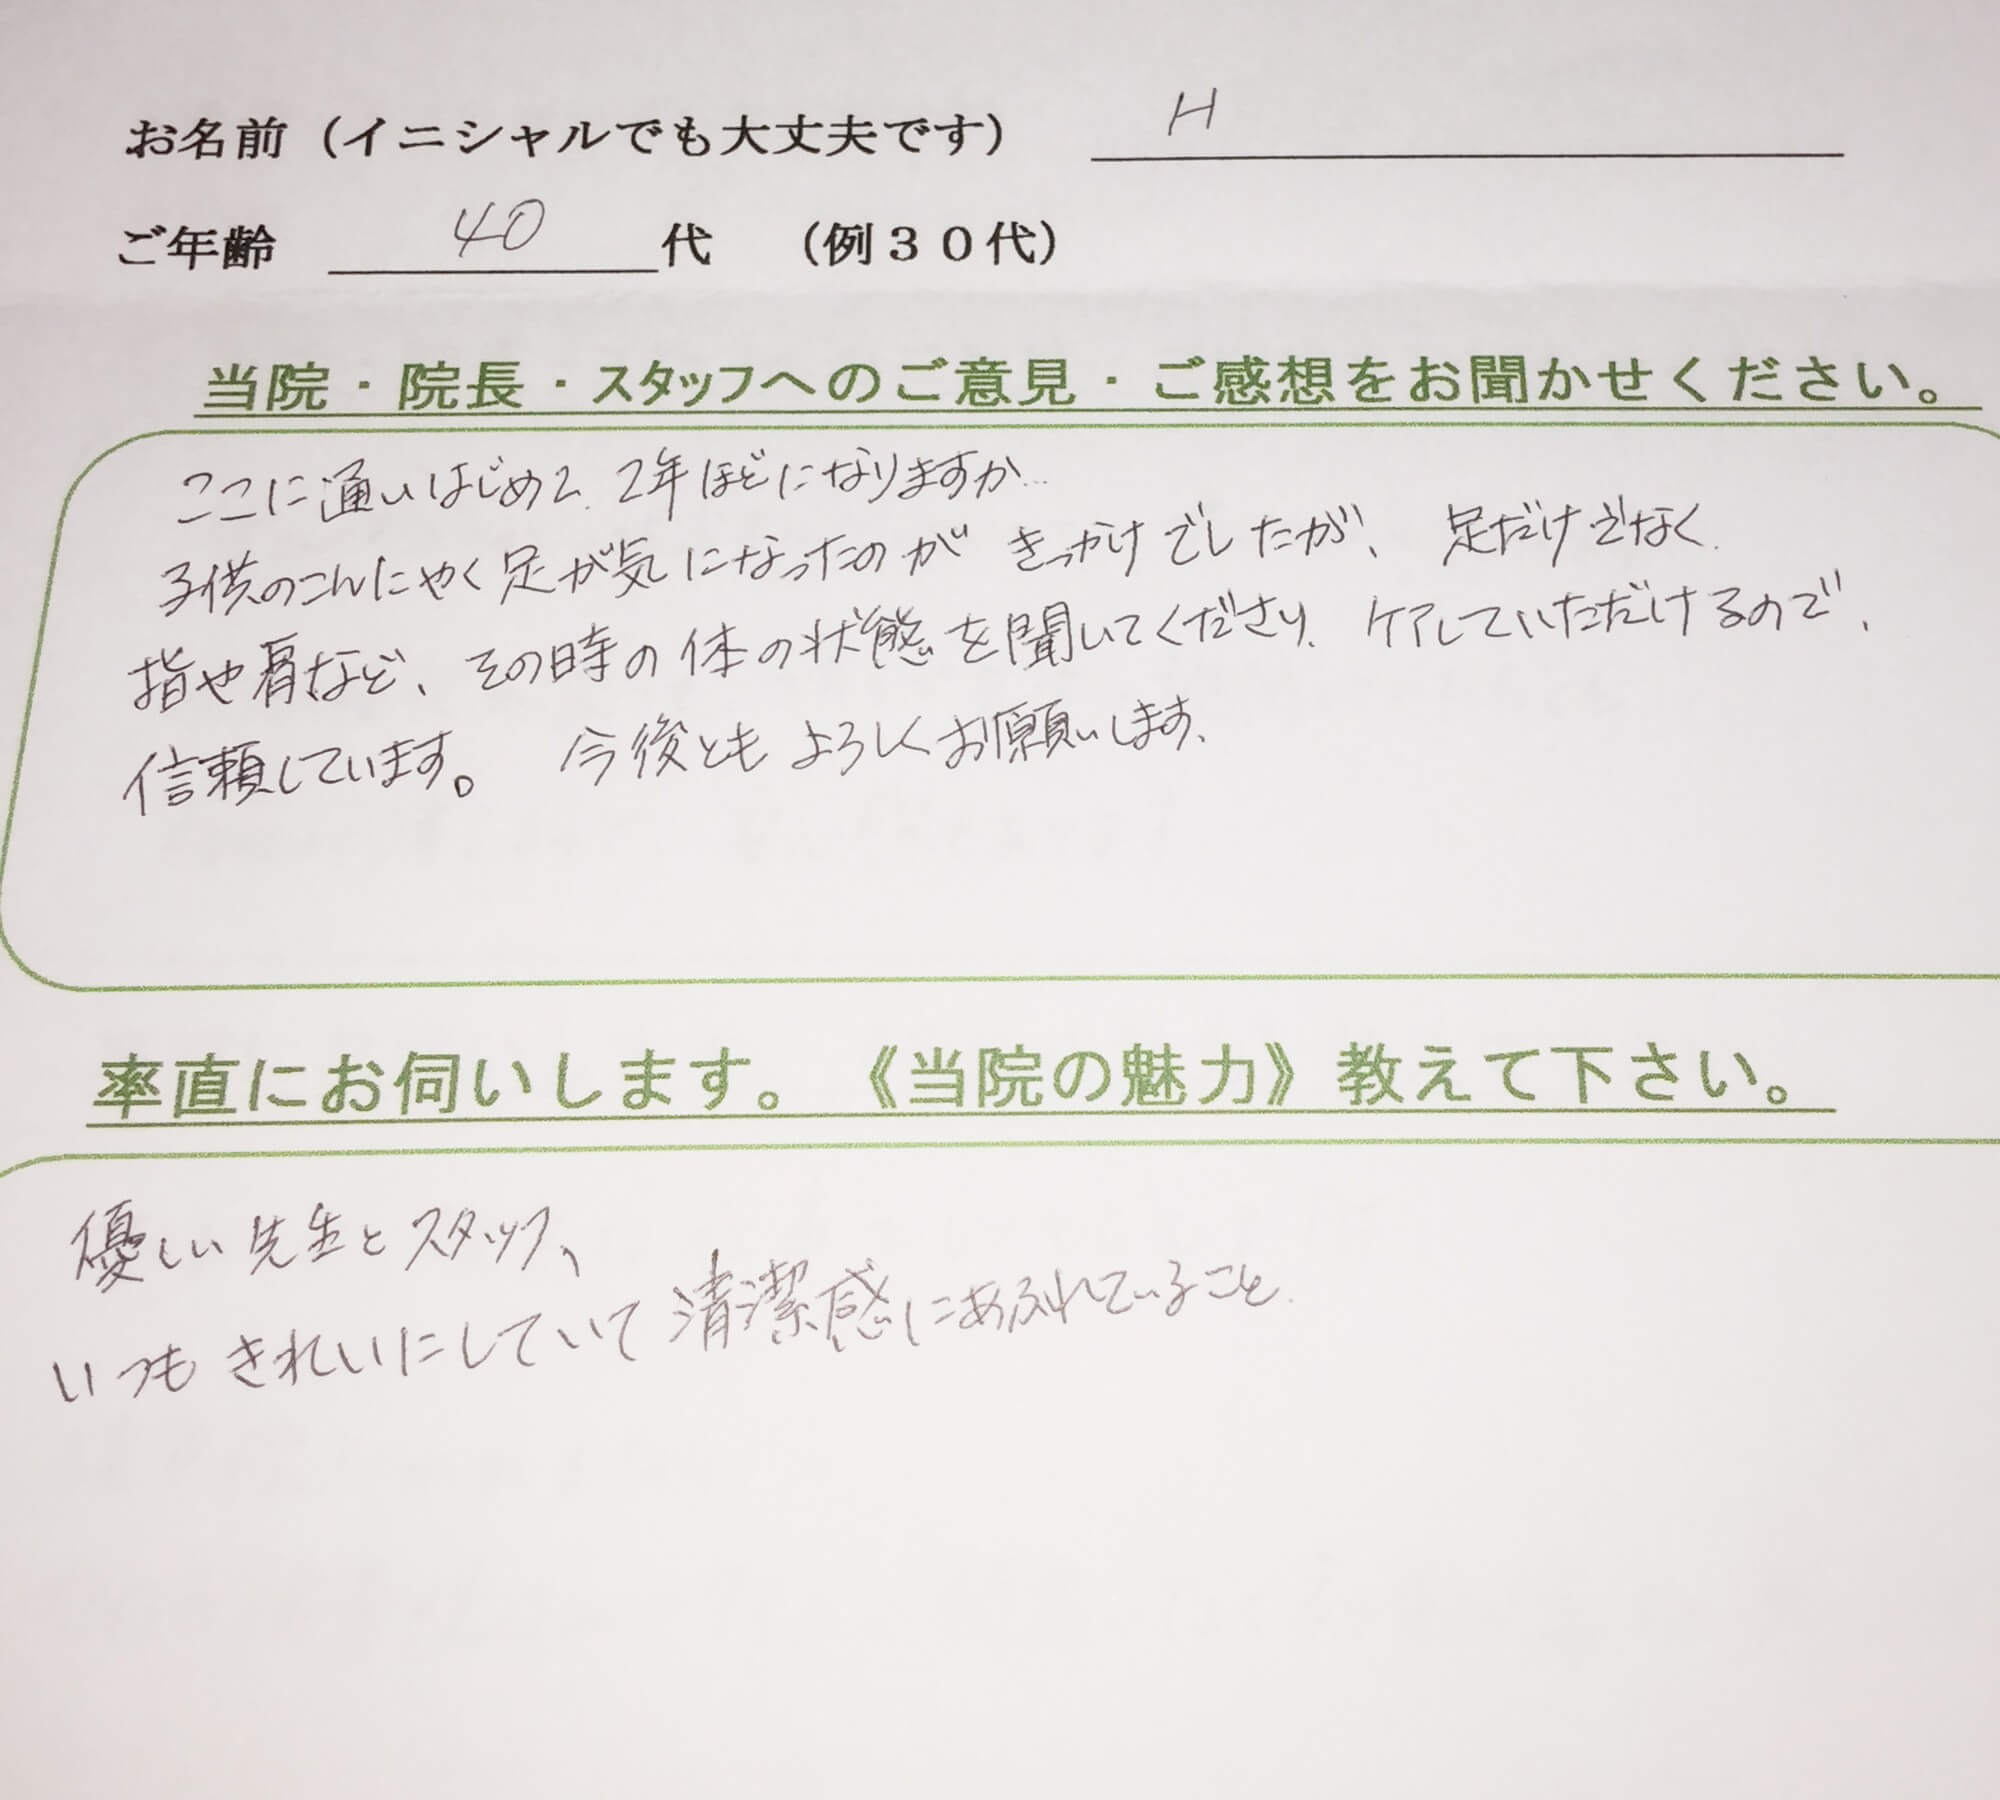 お名前（イニシャルでも大丈夫です） H
ご年齢 40 代 （例３０代）
当院・院長・スタッフへのご意見・ご感想をお聞かせください。
ここに通いはじめて、2年ほどになりますが…
子供のこんにゃく足が気になったのが きっかけでしたが、 足だけでなく、
指や肩など、その時の体の状態を聞いてくださり、ケアしていただけるので、
信頼しています。 今後とも よろしくお願いします、
率直にお伺いします。《当院の魅力》教えて下さい。
優しい先生とスタッフ、
いつも きれいにしていて 清潔感にあふれていること．